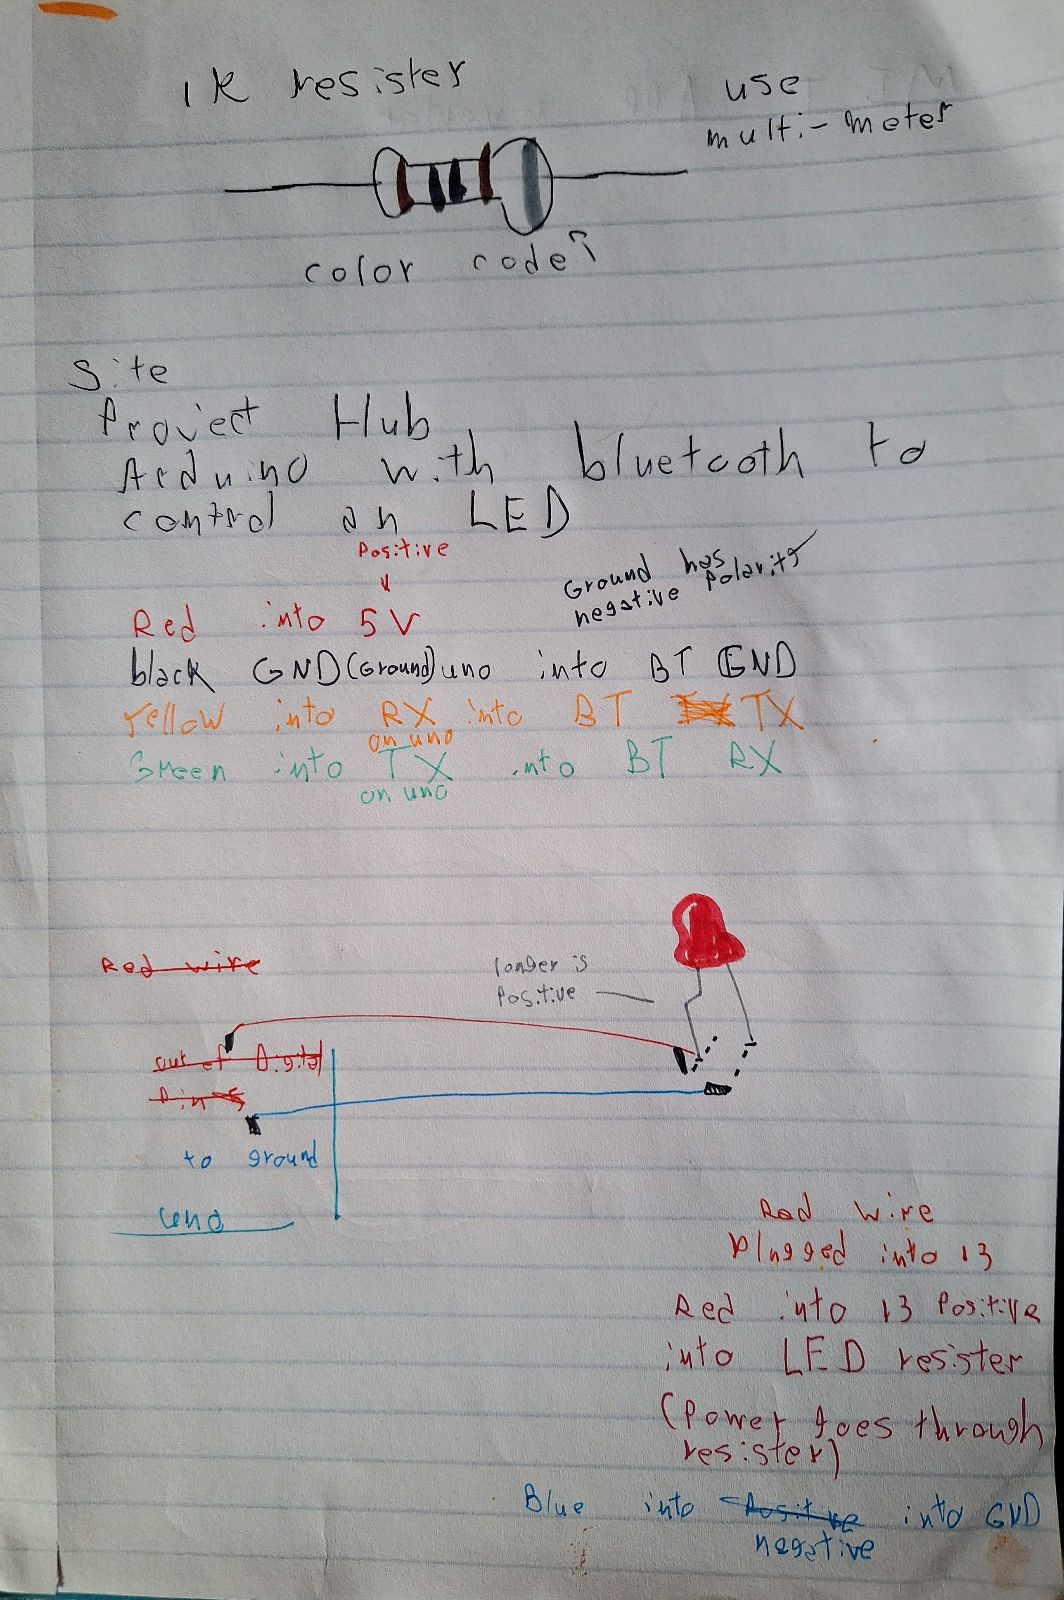 1K resister
use
multi-meter
color code?
Site
Project Hub
Arduino with bluetooth to
control an LED
Positive
Ground has
negative polarity
Red into 5V
black GND (Ground) uno into BT GND
Yellow into RX into BT TX
on uno
Green into TX into BT RX
on uno
Red wire
longer is
Positive
out of Digital
Pin
to ground
uno
Red wire
plugged into 13
Red into 13 Positive
into LED resister
(Power goes through
resister)
Blue into Positive into GND
negative